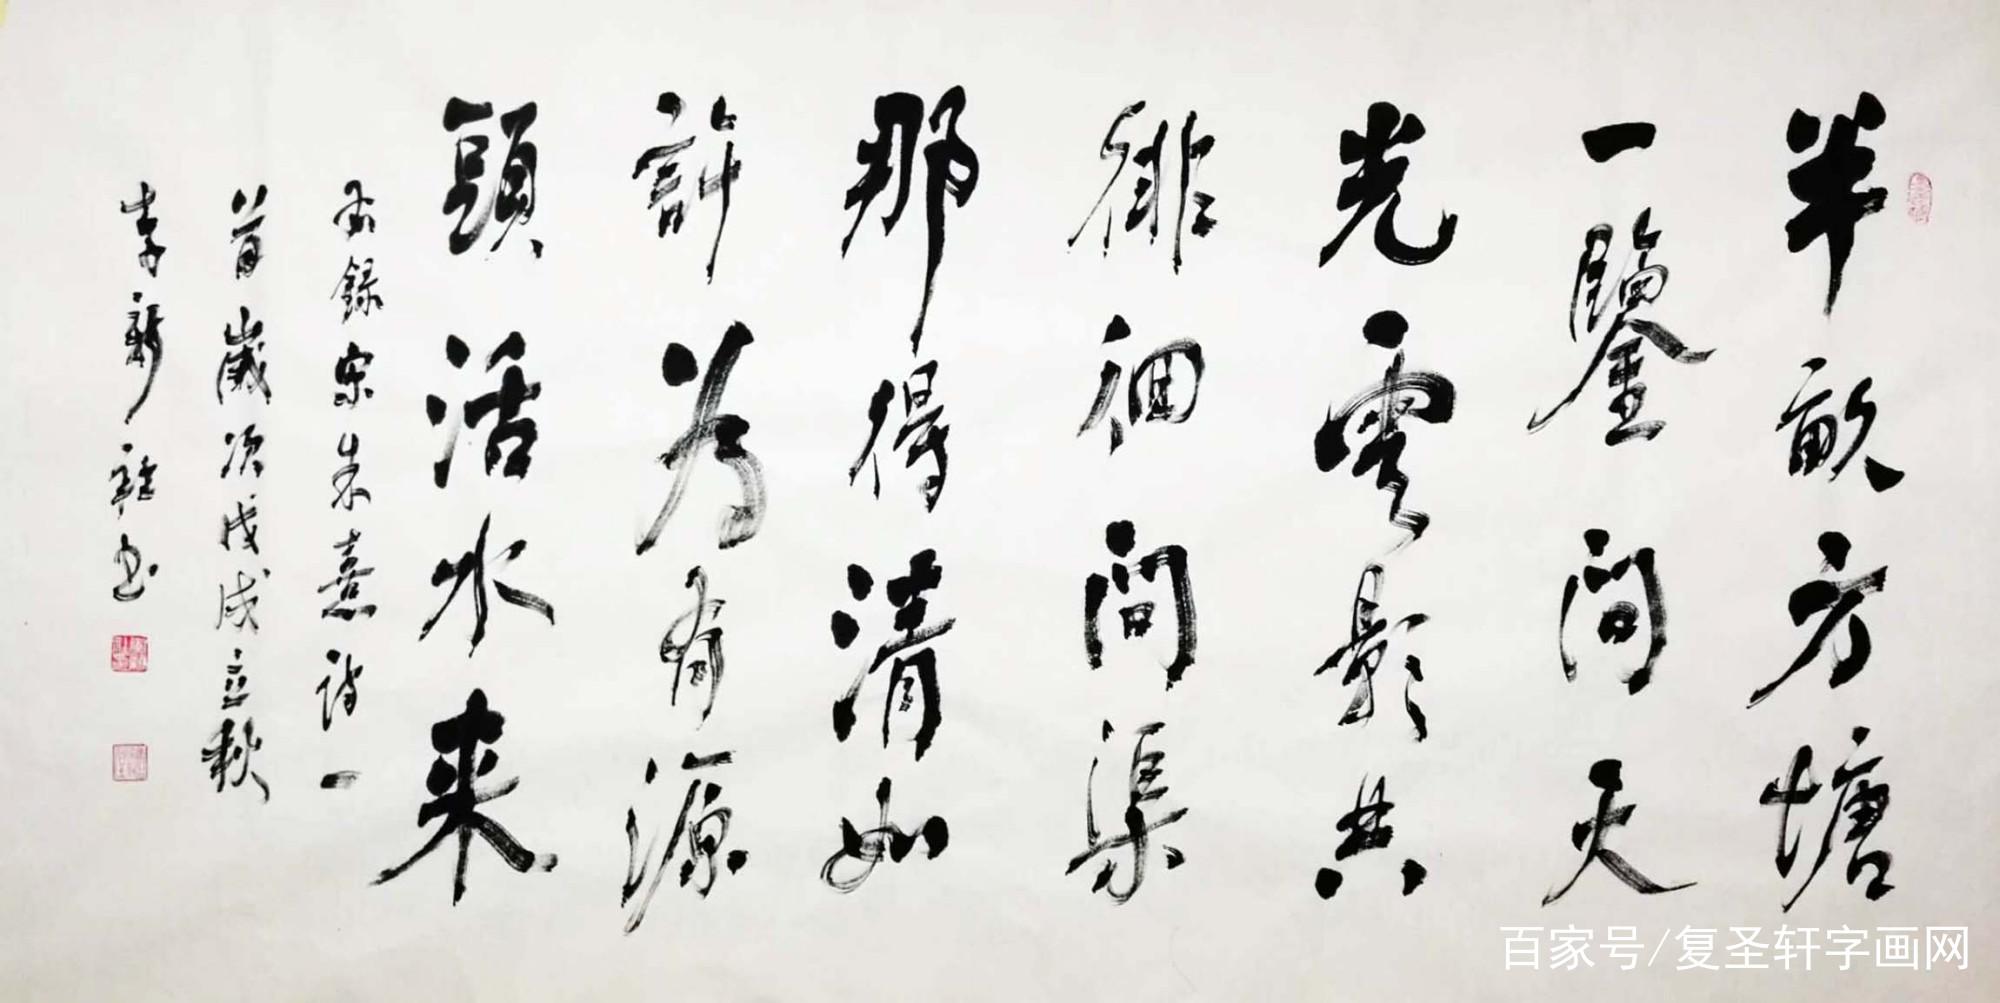 半畝方塘
一鑒開天
光雲影共
徘徊問渠
那得清如
許为有源
頭活水来
右録宋朱熹诗一
首歲次戊戌立秋
李新书
百家号/复圣轩字画网